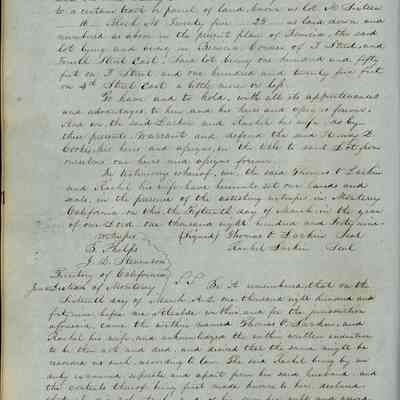 to a certain tract or parcel of land, known as Lot No Sixteen
16 Block No Twenty five 25 as laid down and
numbered as above in the present plan of Benicia, the said
lot lying and being in Benicia Corner of I Street, and
Fourth Street East. Said lot being one hundred and fifty
feet on I Street and one hundred and twenty five feet
on 4th Street East a little more or less.
To have and to hold, with all its appurtenances
and advantages to him and his heirs and assigns forever.
And we the said Larkin and Rachel his wife, do by
these presents, Warrant and defend the said Henry D
Cooke, his heirs and assigns, in the title to said Lot, from
ourselves our heirs and assigns forever.
In testimony whereof, we, the said Thomas O Larkin
and Rachel his wife have hereunto set our hands and
seals, in the presence of the attesting witnesses in Monterey
California on this the Fifteenth day of March in the year
of our Lord one thousand eight hundred and forty nine.
Witnesses (Signed) Thomas O. Larkin Seal
B. Phelps Rachel Larkin Seal
J. D. Stevenson
Territory of California
District of Monterey S.S. Be it remembered, that on the
Sixteenth day of March A.D. one thousand eight hundred and
forty nine before me Alcalde within and for the jurisdiction
aforesaid, came the within named Thomas O. Larkin, and
Rachel his wife, and acknowledged the within written
to be their act and deed, and desired that the same might be
recorded as such according to law. The said Rachel being by me
duly examined separate and apart from her said husband, and
the contents thereof being first made known to her, declared